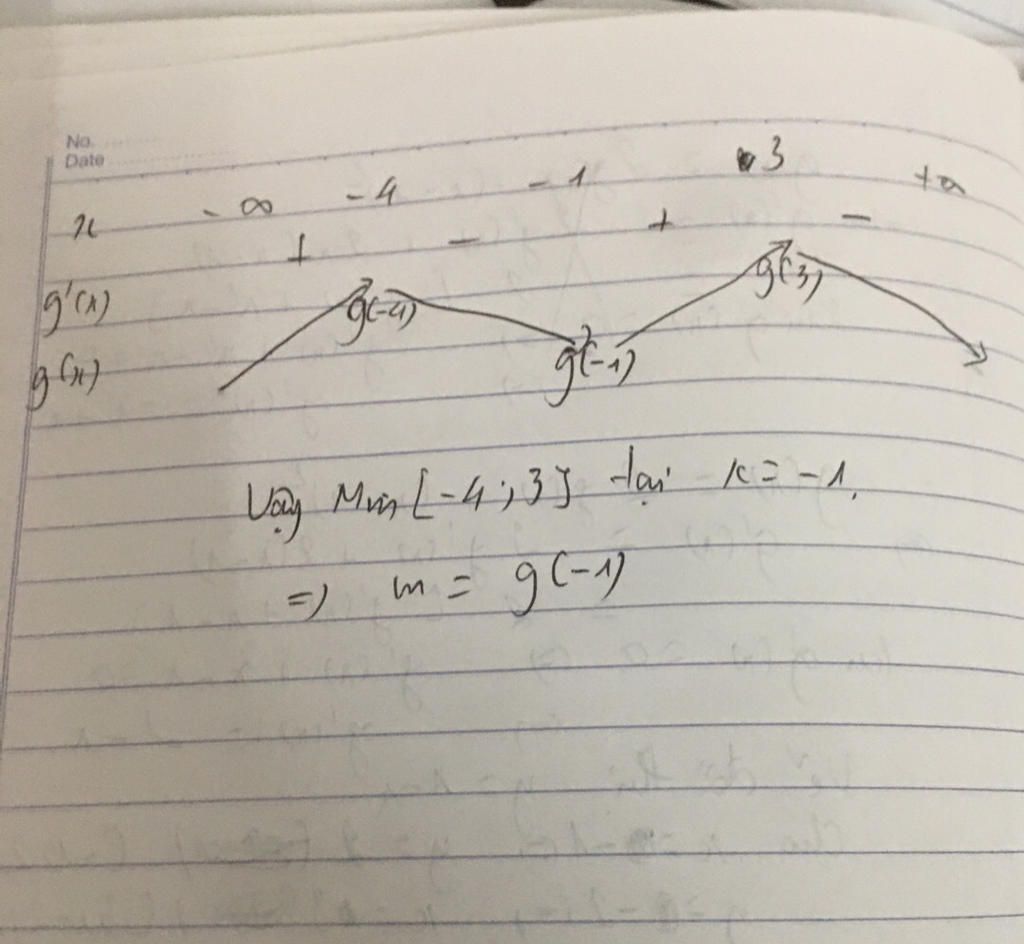 No.
Date
x -∞ -4 -1 3 +∞
g'(x) + - + -
g(x) g(-4) g(-1) g(3)
Vậy Min [-4;3] tại x = -1.
=) m = g(-1)